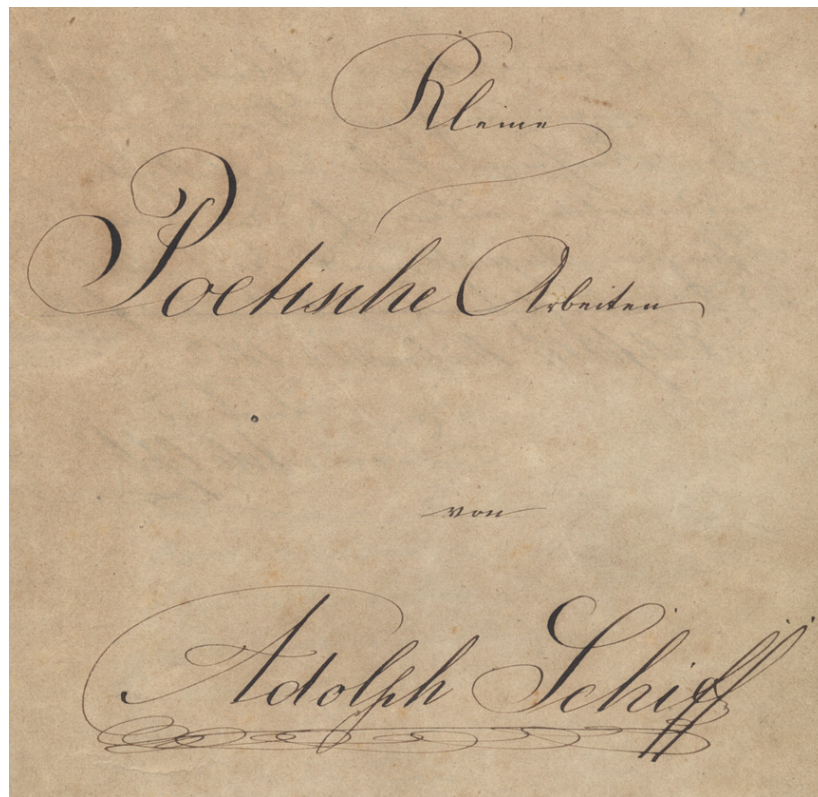 Kleine
Poetische Arbeiten
von
Adolph Schiff